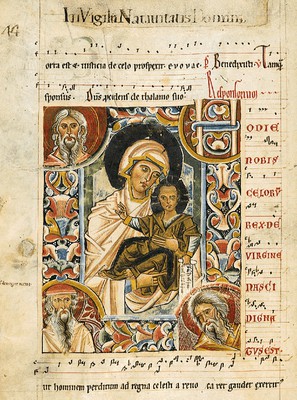 In Vigilia Natauitatis Domini
orta est & iusticia de celo prosperit e v o v a e. Benedicisti Tamqͣ
sponsus Dñs p̱cedens de thalamo suo Responsorium
H
ODIE
NOBIS
CELORV̄
REX DE
VIRGINE
NASCI
DIGNA
TVS EST
ut hominem perditum ad regna celestia revo ca ret gaudet exercit᷒